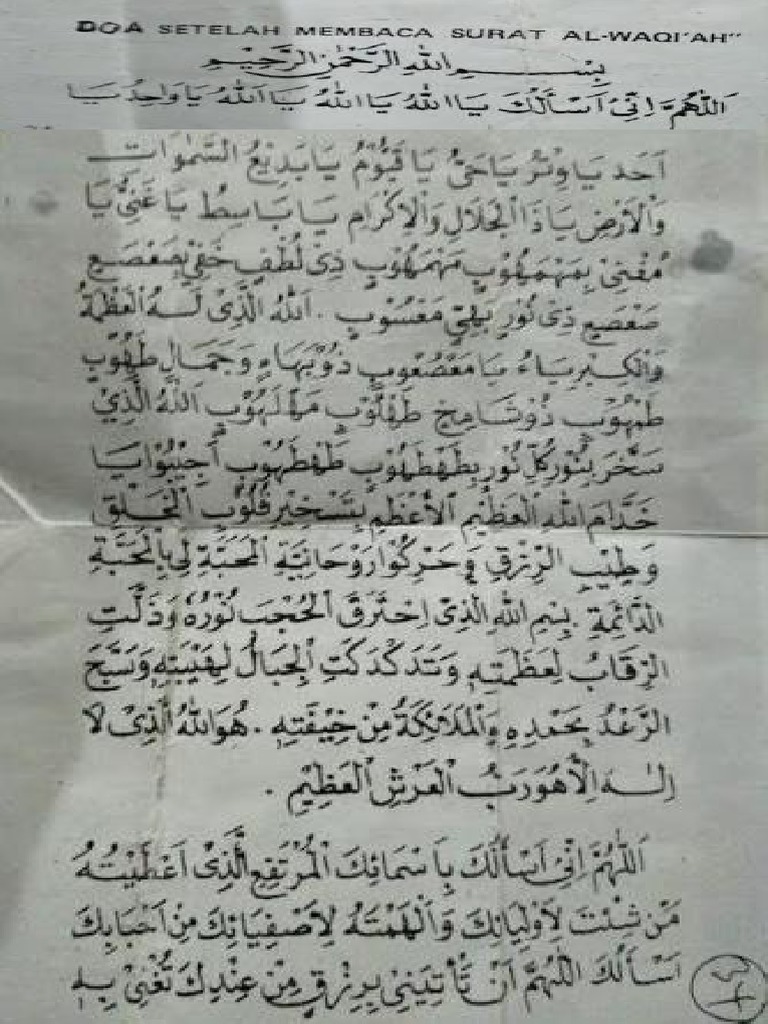 DOA SETELAH MEMBACA SURAT AL-WAQI'AH"
بِسْمِ اللهِ الرَّحْمٰنِ الرَّحِيْمِ
اَللّٰهُمَّ اِنِّيْ اَسْأَلُكَ يَا اَللهُ يَا اَللهُ يَا اَللهُ يَا وَاحِدُ يَا
اَحَد يَا وِتْرُ يَا حَيُّ يَا قَيُّوْمُ يَا بَدِيْعُ السَّمٰوَاتِ
وَالْاَرْضِ يَا ذَا الْجَلَالِ وَالْاِكْرَامِ يَا بَاسِطُ يَا غَنِيُّ يَا
مُغْنِىْ بِمَهْمَهُوْبٍ مَهْمَهُوْبٍ ذِىْ لُطْفٍ خَفِيٍّ بِصَعْصَعٍ
صَعْصَعٍ ذِىْ نُوْرٍ بَهِيٍّ مَعْسُوْبٍ . اَللهُ الَّذِىْ لَهُ الْعَظَمَةُ
وَالْكِبْرِيَاءُ يَا مَعْصَعُوْبٍ ذُوْ بَهَاءٍ وَجَمَالٍ طَهُوْبٍ
طَمْهُوْبٍ ذُوْ شَامِخٍ طَهْلُوْبٍ مَهْلَهُوْبٍ اَللهُ الَّذِيْ
سَخَّرَ بِنُوْرِ كُلِّ نُوْرٍ بِطَهْطَهُوْبٍ طَهْطَهُوْبٍ اَجِيْبُوْا يَا
خَدَّامَ اللهِ الْعَظِيْمِ الْاَعْظَمِ بِتَسْخِيْرِ قُلُوْبِ الْخَلْقِ
وَطِيْبِ الرِّزْقِ وَحَرِّكُوْا رَوْحَانِيَّةَ الْمَحَبَّةِ لِيْ بِالْمَحَبَّةِ
الدَّائِمَةِ بِسْمِ اللهِ الَّذِىْ اِخْتَرَقَ الْحُجُبَ نُوْرُهُ وَذَلَّتِ
الرِّقَابُ لِعَظَمَتِهِ وَتَدَكْدَكَتِ الْجِبَالُ لِهَيْبَتِهِ وَسَبَّحَ
الرَّعْدُ بِحَمْدِهِ وَالْمَلَائِكَةُ مِنْ خِيْفَتِهِ . هُوَ اللهُ الَّذِىْ لَا
اِلٰهَ اِلَّا هُوَ رَبُّ الْعَرْشِ الْعَظِيْمِ .
اَللّٰهُمَّ اِنِّىْ اَسْأَلُكَ بِاَسْمَائِكَ الْمُرْتَفِعِ الَّذِىْ اَعْطَيْتَهُ
مَنْ شِئْتَ لِاَوْلِيَائِكَ وَاَلْهَمْتَهُ لِاَصْفِيَائِكَ مِنْ اَحْبَابِكَ
اَسْأَلُكَ اللّٰهُمَّ اَنْ تَأْتِيَنِىْ بِرِزْقٍ مِنْ عِنْدِكَ تُغْنِىْ بِهِ